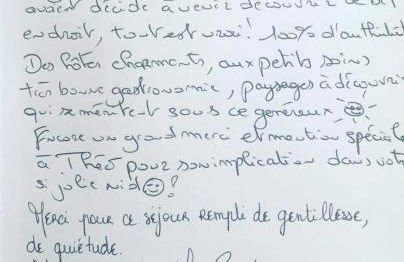 avaient décidé à venir découvrir
endroit, tout est vrai! 100% d'authenticité
Des hôtes charmants, aux petits soins
très bonne gastronomie, paysages à découvrir
qui méritent sous ce généreux
Encore un grand merci et mention spéciale
à Théo pour son implication dans votre
si joli nid !
Merci pour ce séjour rempli de gentillesse,
de quiétude.